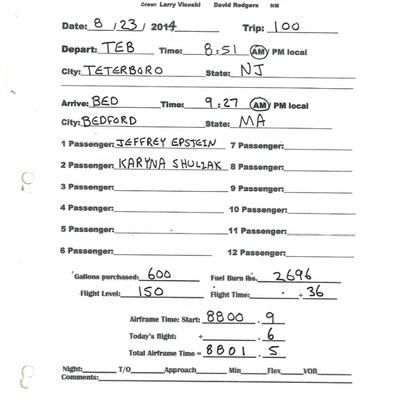 Crew: Larry Visoski David Rodgers NM
Date: 8 / 23 / 2014 Trip: 100
Depart: TEB Time: 8:51 AM PM local
City: TETERBORO State: NJ
Arrive: BED Time: 9:27 AM PM local
City: BEDFORD State: MA
1 Passenger: JEFFREY EPSTEIN 7 Passenger:
2 Passenger: KARYNA SHULIAK 8 Passenger:
3 Passenger: 9 Passenger:
4 Passenger: 10 Passenger:
5 Passenger: 11 Passenger:
6 Passenger: 12 Passenger:
Gallons purchased: 600 Fuel Burn lbs. 2696
Flight Level: 150 Flight Time: . + 36
Airframe Time: Start: 8800 . 9
Today's flight: + . 6
Total Airframe Time = 8801 . 5
Night: T/O Approach Min Flex VOR
Comments: